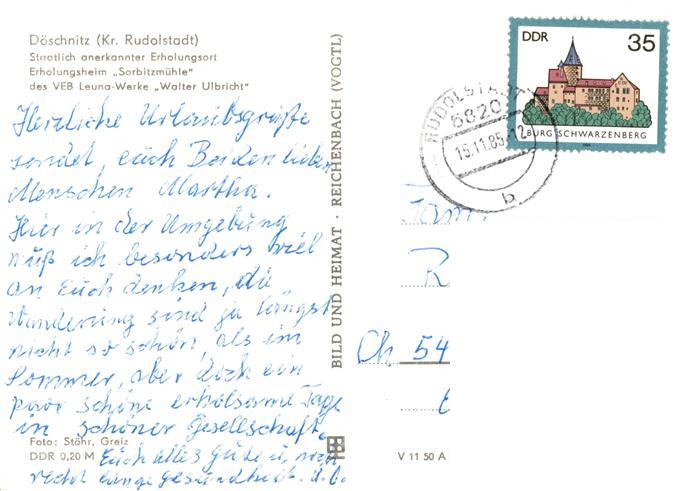 Döschnitz (Kr. Rudolstadt)
Staatlich anerkannter Erholungsort
Erholungsheim „Sorbitzmühle"
des VEB Leuna-Werke „Walter Ulbricht"
Herzliche Urlaubsgrüße
sendet euch Beiden lieben
Menschen Martha.
Hier in der Umgebung
muß ich besonders viel
an Euch denken, die
Wanderung sind ja längst
nicht so schön, als im
Sommer, aber doch ein
paar schöne erholsame Tage
in schöner Gesellschaft.
Euch alles gute u. noch
recht lange gesundheit.
Foto: Stöhr, Greiz
DDR 0,20 M
BILD UND HEIMAT · REICHENBACH (VOGTL)
V 11 50 A
DDR 35
BURG SCHWARZENBERG
RUDOLSTADT
6820
15.11.85-12
b
Fam.
R
Ch. 54